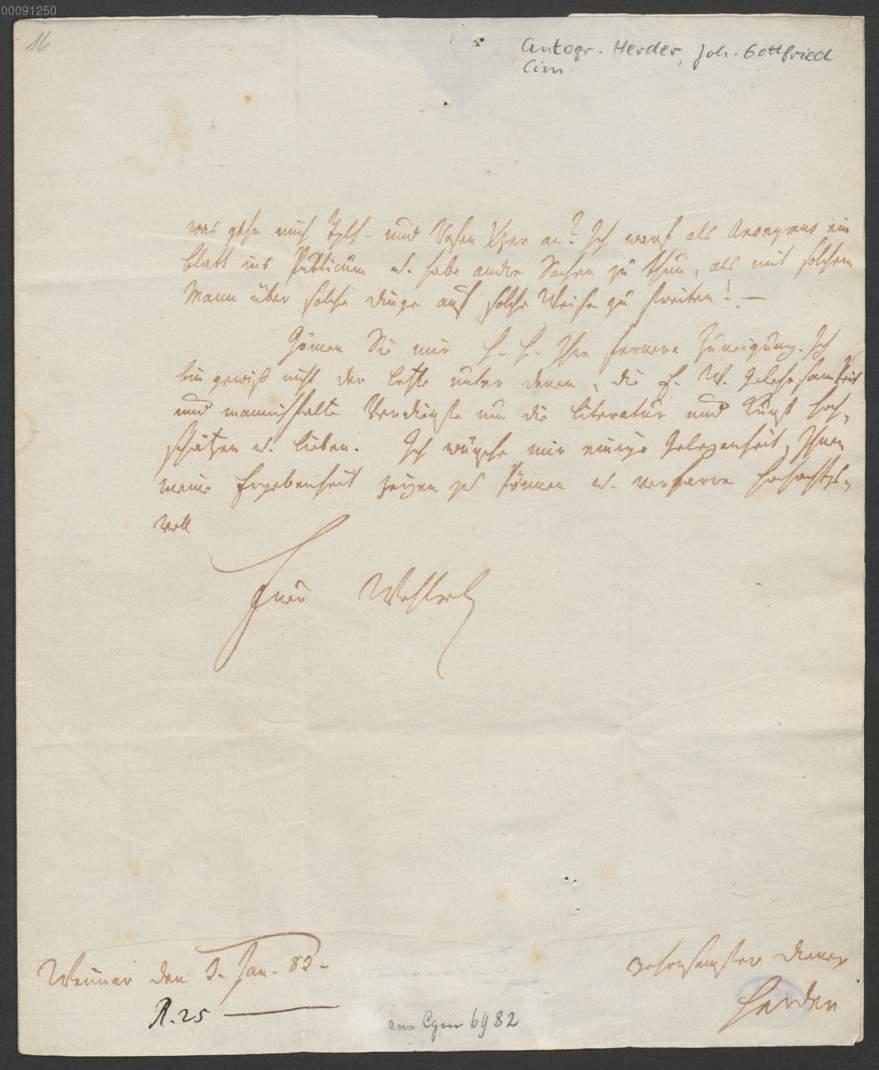 00091250
16
Autogr. Herder, Joh. Gottfried
Cim.
was gehn mich und an? Ich warf als Anonymus ein
Blatt ins Publicum u. habe andre Sachen zu thun, als mit solchem
Mann über solche Dinge auf solche Weise zu streiten! —
Gönnen Sie mir Ihre fernere Zuneigung. Ich
bin gewiß nicht der letzte unter denen, die Gelehrsamkeit
und mannichfalte Verdienste um die Literatur und Kunst hoch-
schätzen u. lieben. Ich wünsche mir einige Gelegenheit, Ihnen
meine Ergebenheit zeigen zu können u. verharre hochachtgs-
voll
Euer Wohlgeb.
Weimar den Jan. 83.
gehorsamster Diener
Herder
R. 25 —
aus Cgm 6982